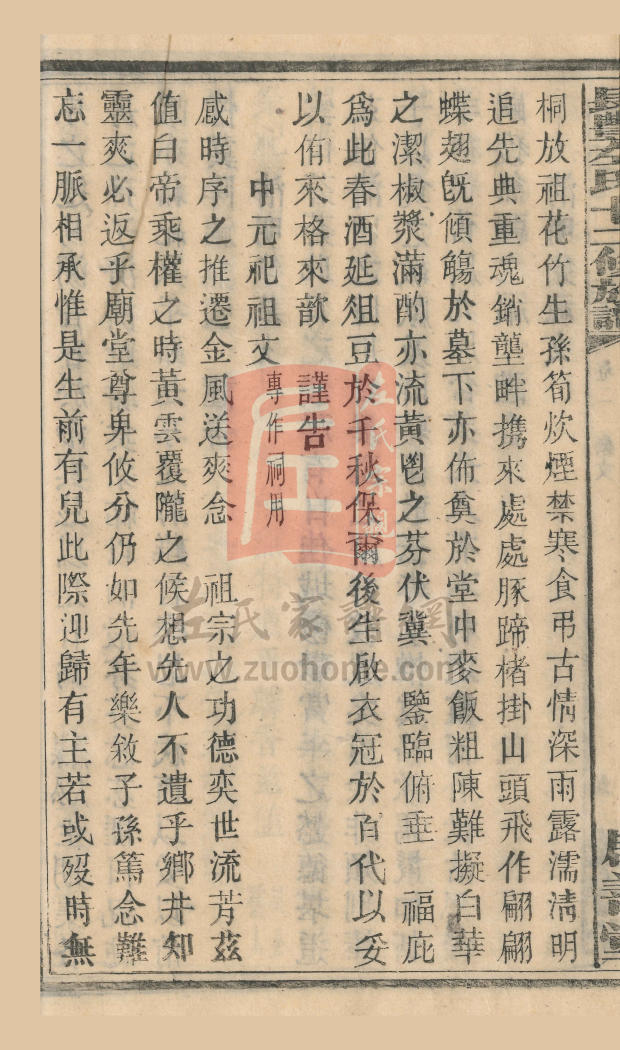 桐放祖花竹生孫筍炊煙禁寒食弔古情深雨露濡淸明
追先典重魂銷壟畔攜來處處豚蹄楮掛山頭飛作翩翩
蝶翅旣傾觴於墓下亦佈奠於堂中麥飯粗陳難擬白華
之潔椒漿滿酌亦流黃鬯之芬伏冀　鑒臨俯垂　福庇
爲此春酒延俎豆於千秋保爾後生啟衣冠於百代以妥
以侑來格來歆　謹告
中元祀祖文 專作祠用
感時序之推遷金風送爽念　祖宗之功德奕世流芳茲
值白帝乘權之時黃雲覆隴之候想先人不遺乎鄉井知
靈爽必返乎廟堂尊卑攸分仍如先年樂敘子孫篤念難
忘一脈相承惟是生前有兒此際迎歸有主若或歿時無
左氏家譜網
www.zuohome.com